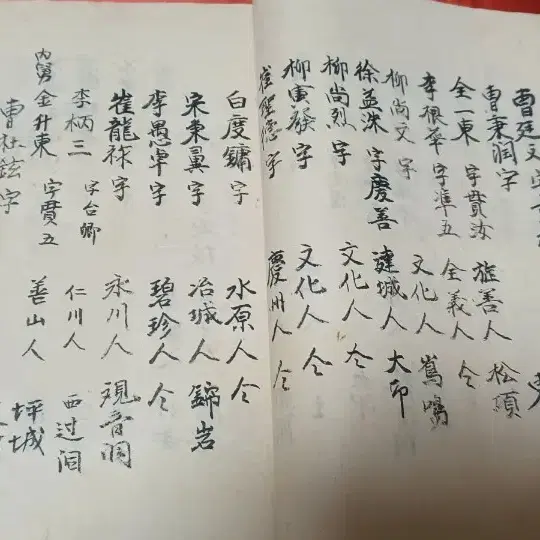 曺秉潤 字 旌善人 松項
全一東 字貫汝 全義人 仝
李根華 字準五 文化人
柳尚文 字 文化人
徐益洙 字慶善 達城人 大印
柳尚烈 字 文化人 仝
柳寅發 字 文化人 仝
崔聖德 字 慶州人 仝
白度鏞 字 水原人 仝
宋秉翼 字 冶城人 錦岩
李愚宰 字 碧珍人 仝
崔龍祿 字 永川人 观音洞
李柄三 字台卿 仁川人 西过洞
內舅 金升東 字貫五 善山人 坪城
曺社鉉 字